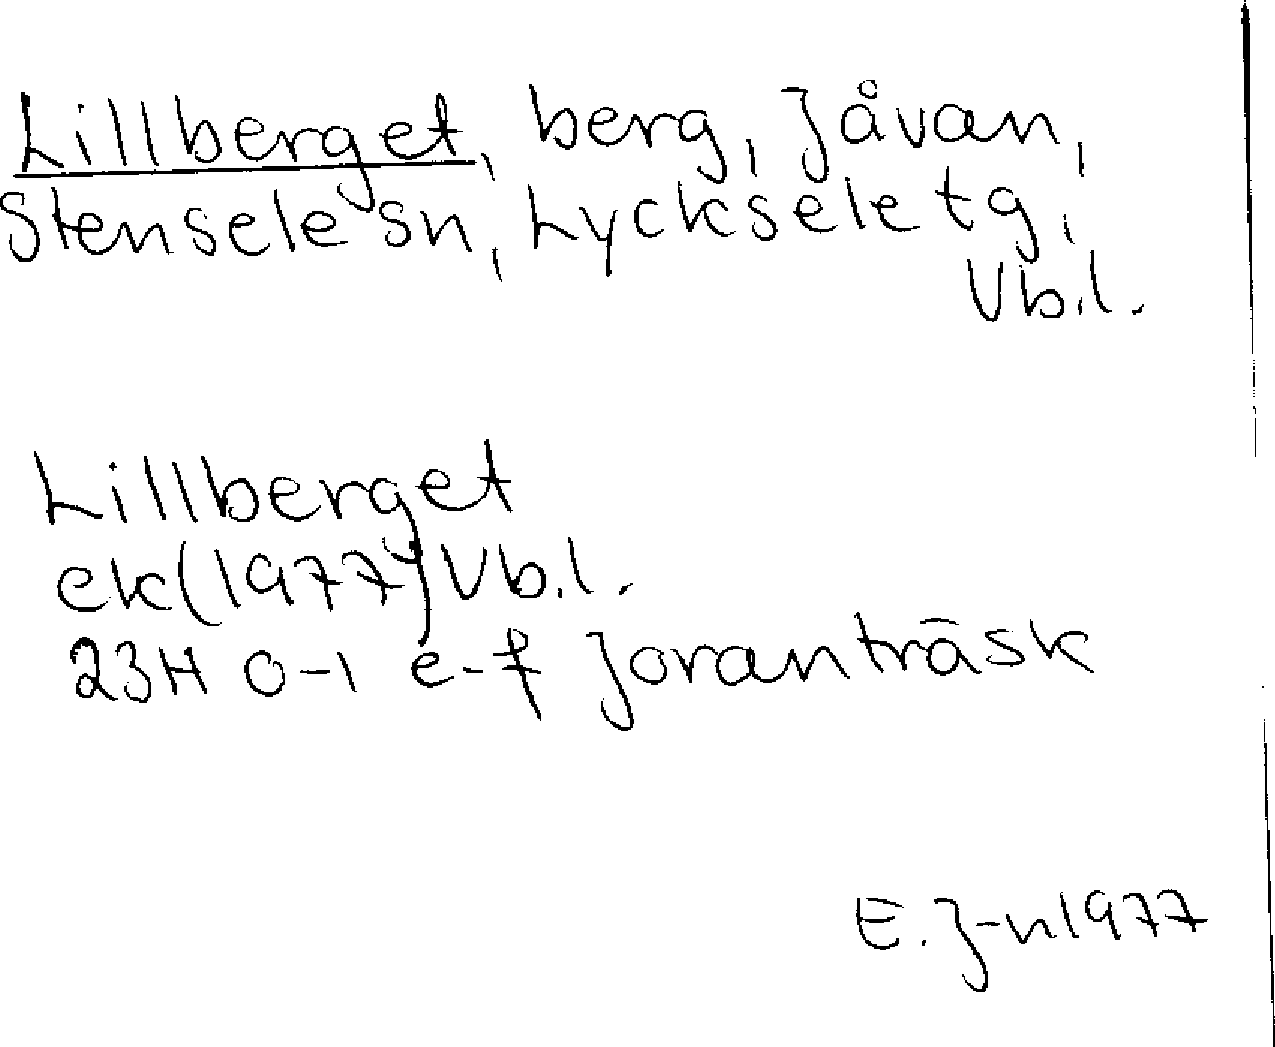 Lillberget, berg, Jåvan,
Stensele sn, Lycksele tg,
Vb.l.
Lillberget
ek(1977) Vb.l.
23H 0-1 e-f Joranträsk
E.J-n 1977